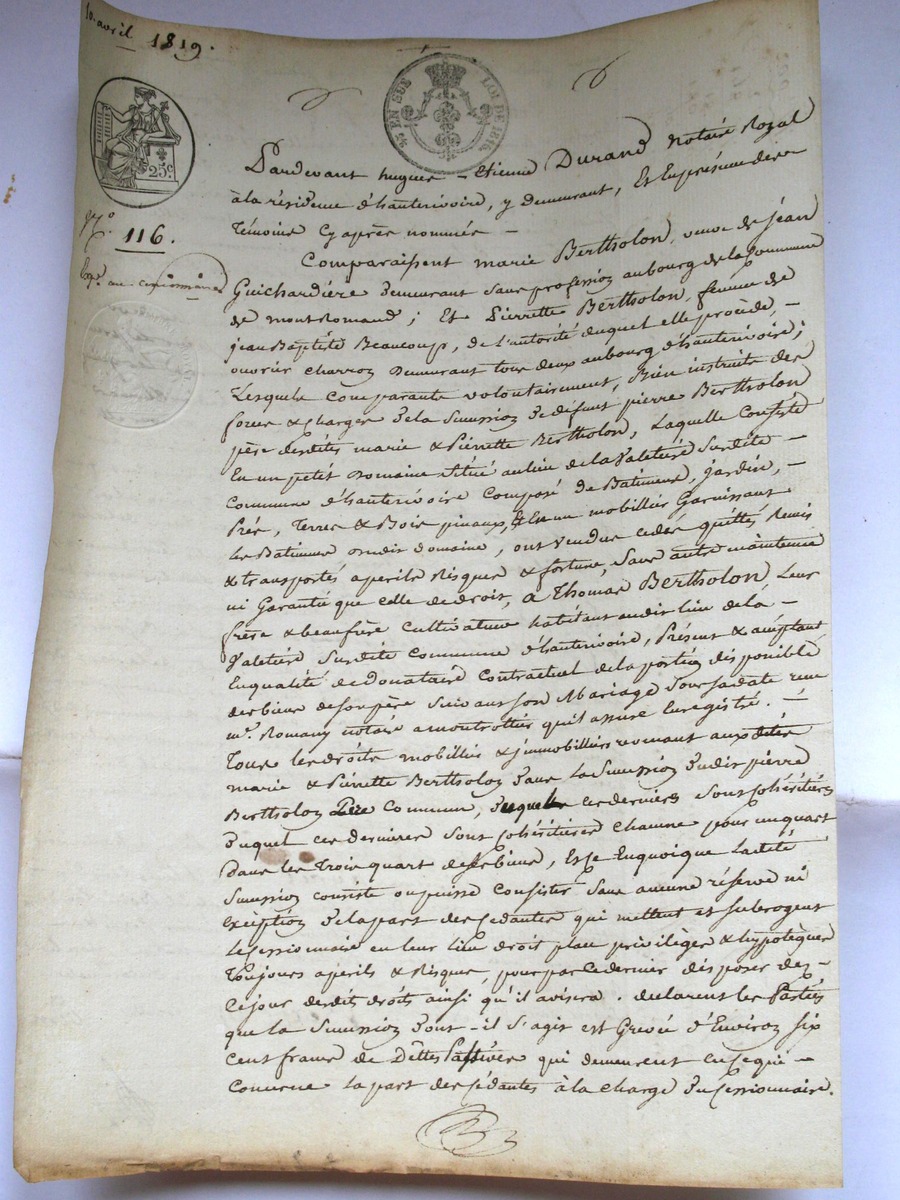 10. avril 1819.
EN SUS LOI DE 1816.
25c.
N.º 116.
Exp. au cessionnaire
Pardevant hugues-Etienne Durand Notaire Royal
à la résidence d'hauterivoire, y demeurant, Et en présence des
Témoins Cy après nommés -
Comparaissent marie Bertholon, veuve de jean
Guichardiere demeurant sans profession au bourg de la Commune
de montRomand; Et Pierrette Bertholon, femme de
jean Baptiste Beaucoup, de l'autorité duquel elle procède, -
ouvrier charron demeurant tous deux au bourg d'hauterivoire;
Lesquels Comparants volontairement, Bien instruits des
forces & charges de la Succession de défunt pierre Bertholon
père desdites marie & Pierrette Bertholon, Laquelle Consiste
En un petit Domaine situé au lieu de la Valetière Susdite -
Commune d'hauterivoire Composé de Batiments, jardin, -
Prés, Terres & Bois pinaux, & En un mobillier Garnissant
les Batiments dudit domaine, ont vendus cédés quittés Remis
& transportés a perils Risques & fortune, Sans autre maintenue
ni Garantie que celle de droit, à Thomas Bertholon, Leur
frère & beaufrère cultivateur habitant audit lieu de la -
Valetière Susdite Commune d'hauterivoire, Présent & acceptant
En qualité de Donataire Contractuel de la portion disponible
des biens de son père Suivant son Mariage Sous sa date reçu
me. Romany notaire a montrottier qu'il assure Enregistré. -
Tous les droits mobilliers & jmmobilliers revenant auxdites
marie & Pierrette Bertholon dans La Succession dudit pierre
Bertholon Père Commun, duquel ces derniers sont cohéritiers
duquel ces dernieres sont cohéritieres chacune pour un quart
Dans les Trois quart de ses biens, Et ce En quoique Ladite
Succession consiste ou puisse Consister Sans aucune réserve ni
Exception de la part des Cedantes qui mettent et subrogent
le Cessionnaire en leur lieu droit place privilèges & hypotèques
Toujours a perils & Risques, pour par ce dernier disposer dez-
ce jour desdits droits ainsi qu'il avisera. declarent les Parties
que la Succession dont-il s'agit est Grevée d'Environ six
Cent francs de Dettes Passives qui demeurent en ce qui -
Concerne la part des Cédantes à la charge du Cessionnaire.